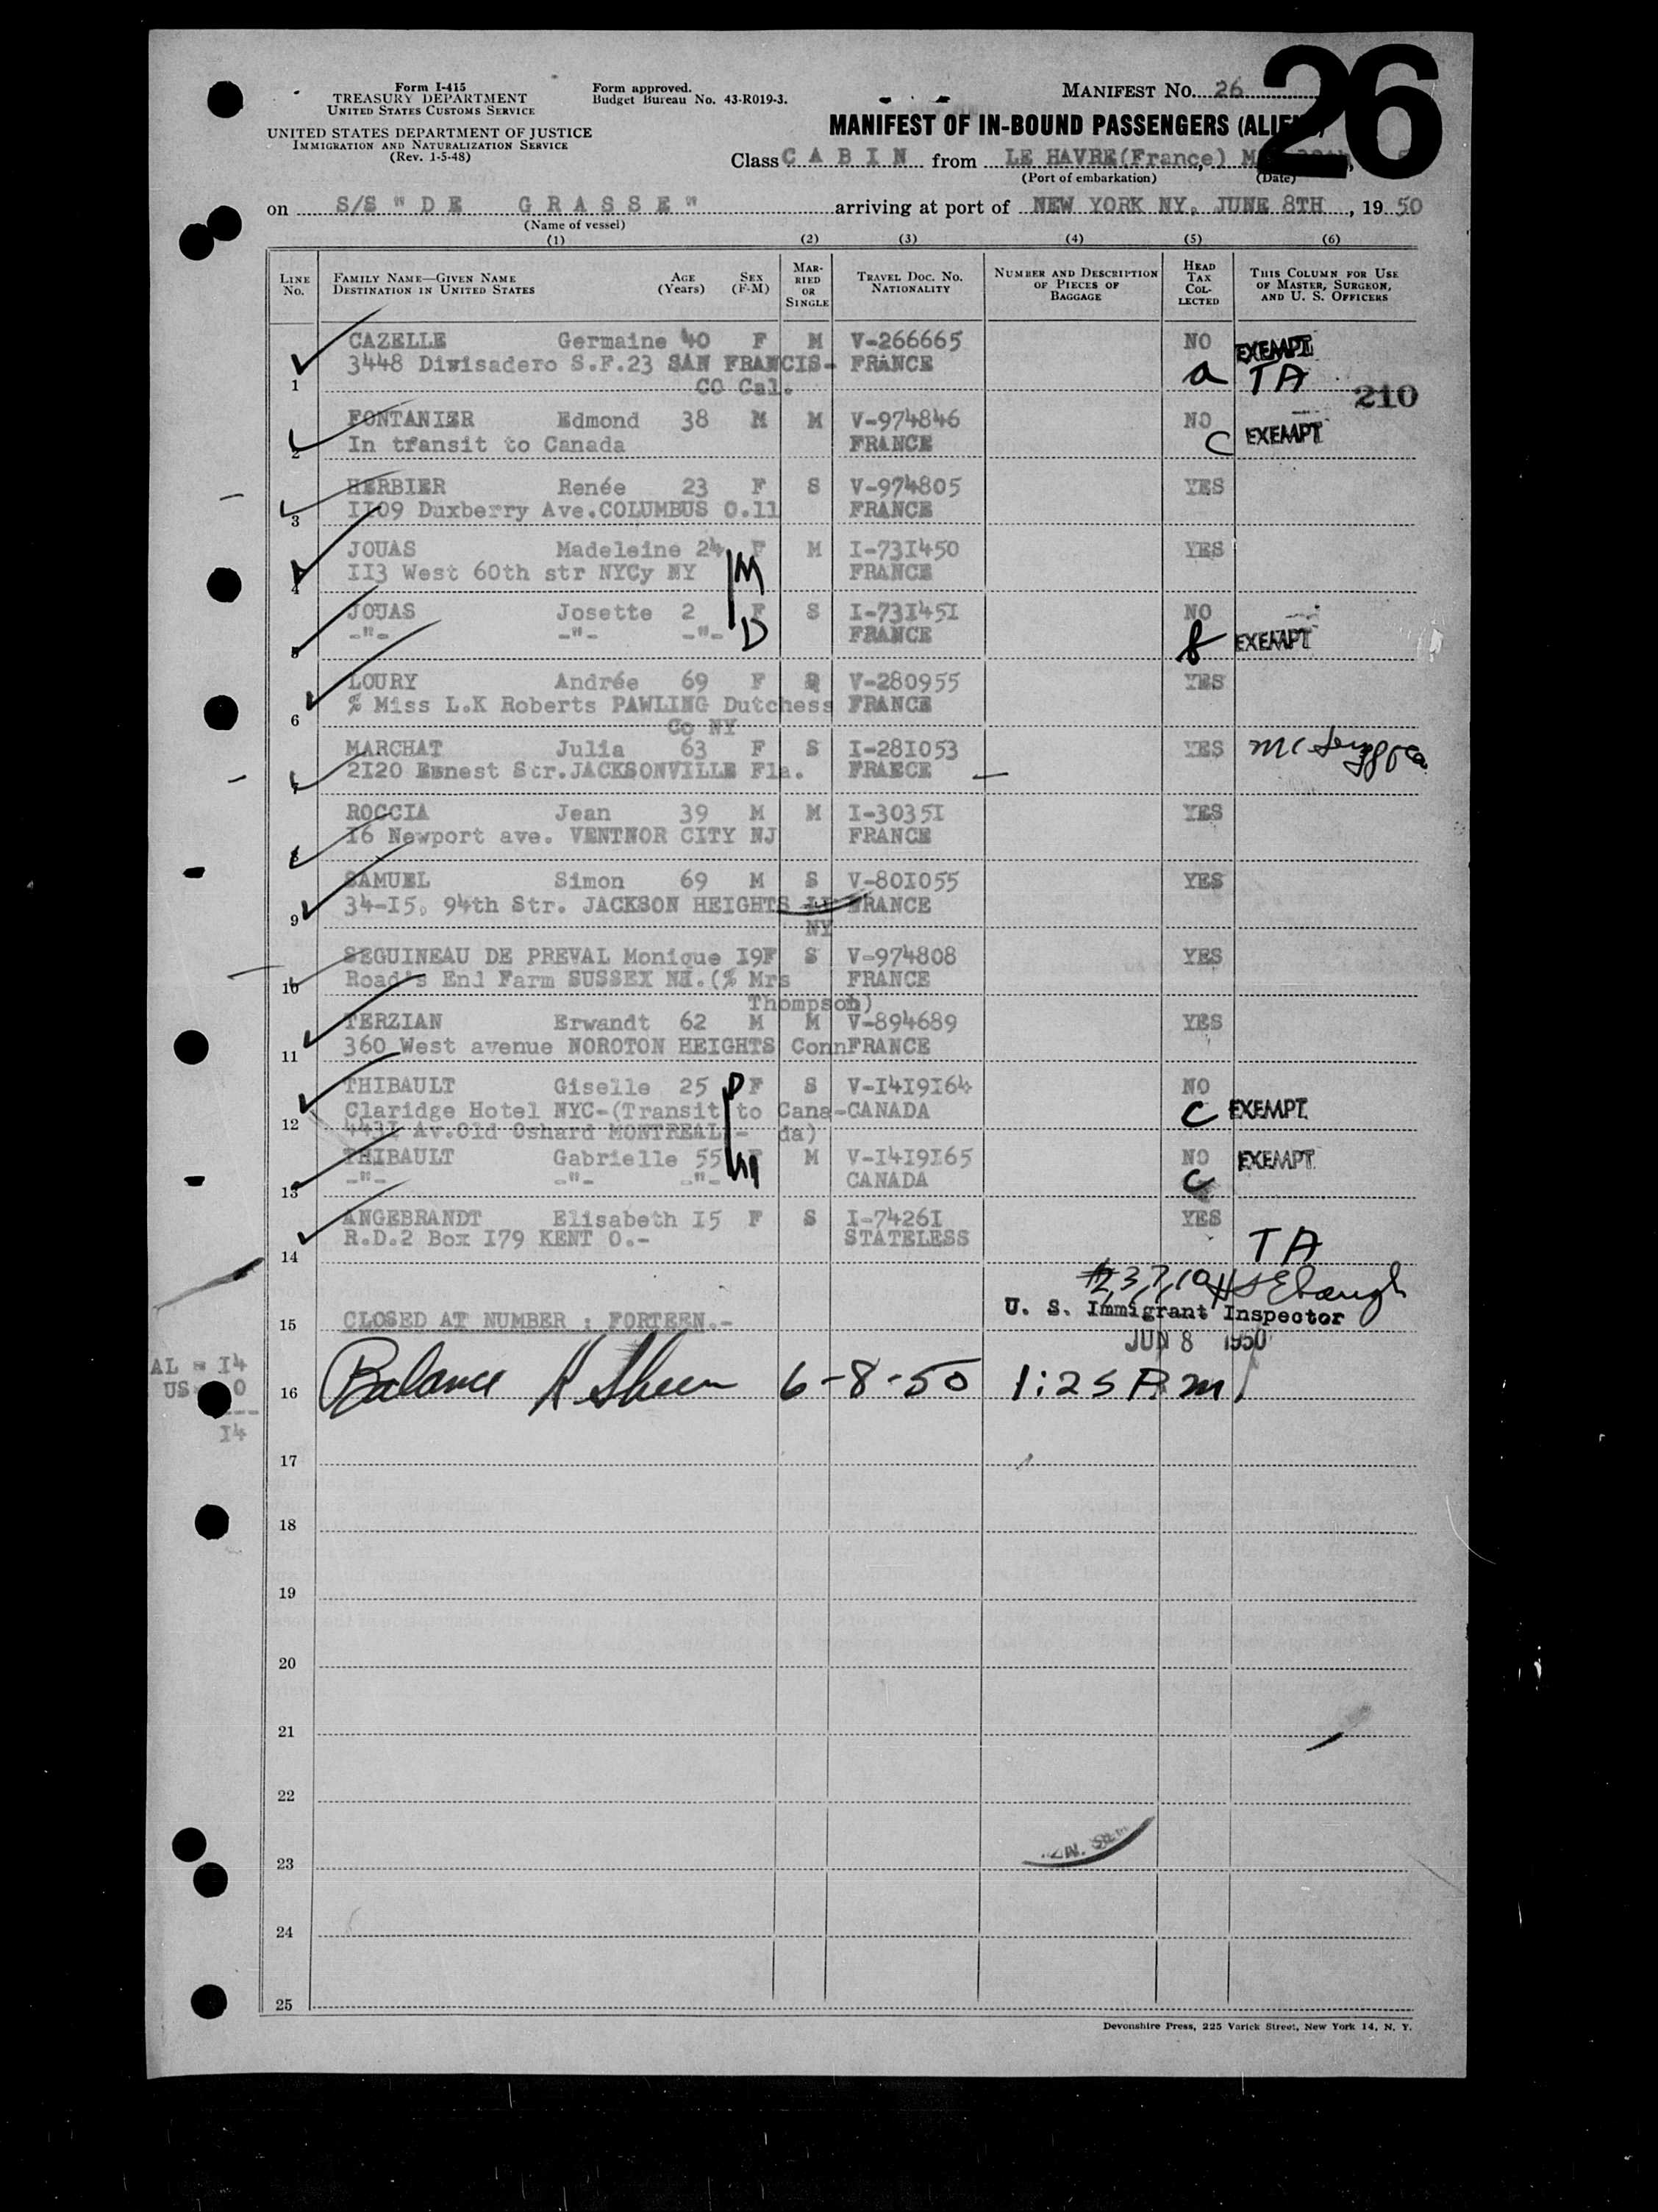 26
Form I-415
TREASURY DEPARTMENT
UNITED STATES CUSTOMS SERVICE
UNITED STATES DEPARTMENT OF JUSTICE
IMMIGRATION AND NATURALIZATION SERVICE
(Rev. 1-5-48)
Form approved.
Budget Bureau No. 43-R019-3.
MANIFEST No. 26
MANIFEST OF IN-BOUND PASSENGERS
Class C A B I N from LE HAVRE(France)
(Port of embarkation) (Date)
on S/S "D E G R A S S E" arriving at port of NEW YORK NY, JUNE 8TH, 1950
(Name of vessel)
(1) (2) (3) (4) (5) (6)
LINE No. FAMILY NAME—GIVEN NAME DESTINATION IN UNITED STATES AGE (Years) SEX (F-M) MARRIED OR SINGLE TRAVEL DOC. No. NATIONALITY NUMBER AND DESCRIPTION OF PIECES OF BAGGAGE HEAD TAX COLLECTED THIS COLUMN FOR USE OF MASTER, SURGEON, AND U. S. OFFICERS
CAZELLE Germaine 40 F M V-266665 NO EXEMPT
3448 Divisadero S.F.23 SAN FRANCIS- FRANCE a TA
1 CO Cal. 210
FONTANIER Edmond 38 M M V-974846 NO
2 In transit to Canada FRANCE C EXEMPT
HERBIER Renée 23 F S V-974805 YES
3 II09 Duxberry Ave.COLUMBUS O.11 FRANCE
JOUAS Madeleine 24 F M I-73I450 YES
4 II3 West 60th str NYCy NY M FRANCE
JOUAS Josette 2 F S I-73I45I NO
5 -"- -"- -"- D FRANCE EXEMPT
LOURY Andrée 69 F V-280955 YES
6 % Miss L.K Roberts PAWLING Dutchess FRANCE
Co NY
MARCHAT Julia 63 F S I-28I053 YES
7 2I20 Ernest Str.JACKSONVILLE Fla. FRAECE
ROCCIA Jean 39 M M I-3035I YES
8 I6 Newport ave. VENTNOR CITY NJ FRANCE
SAMUEL Simon 69 M S V-80I055 YES
9 34-I5, 94th Str. JACKSON HEIGHTS FRANCE
NY
SEGUINEAU DE PREVAL Monique I9F S V-974808 YES
10 Road's End Farm SUSSEX (% Mrs FRANCE
Thompson)
TERZIAN Erwandt 62 M M V-894689 YES
11 360 West avenue NOROTON HEIGHTS Conn FRANCE
THIBAULT Giselle 25 D F S V-I4I9I64 NO
Claridge Hotel NYC-(Transit to Cana- CANADA C EXEMPT
12 443I Av.Old Oshard MONTREAL - da)
THIBAULT Gabrielle 55 M V-I4I9I65 NO EXEMPT
13 -"- -"- -"- M CANADA C
ANGEBRANDT Elisabeth I5 F S I-7426I YES
14 R.D.2 Box I79 KENT O.- STATELESS TA
15 CLOSED AT NUMBER : FORTEEN.- U. S. Immigrant Inspector
JUN 8 1950
AL = I4
US: 0
I4
16 Balance 6-8-50 1:25 P.m
17
18
19
20
21
22
23
24
25
Devonshire Press, 225 Varick Street, New York 14, N. Y.